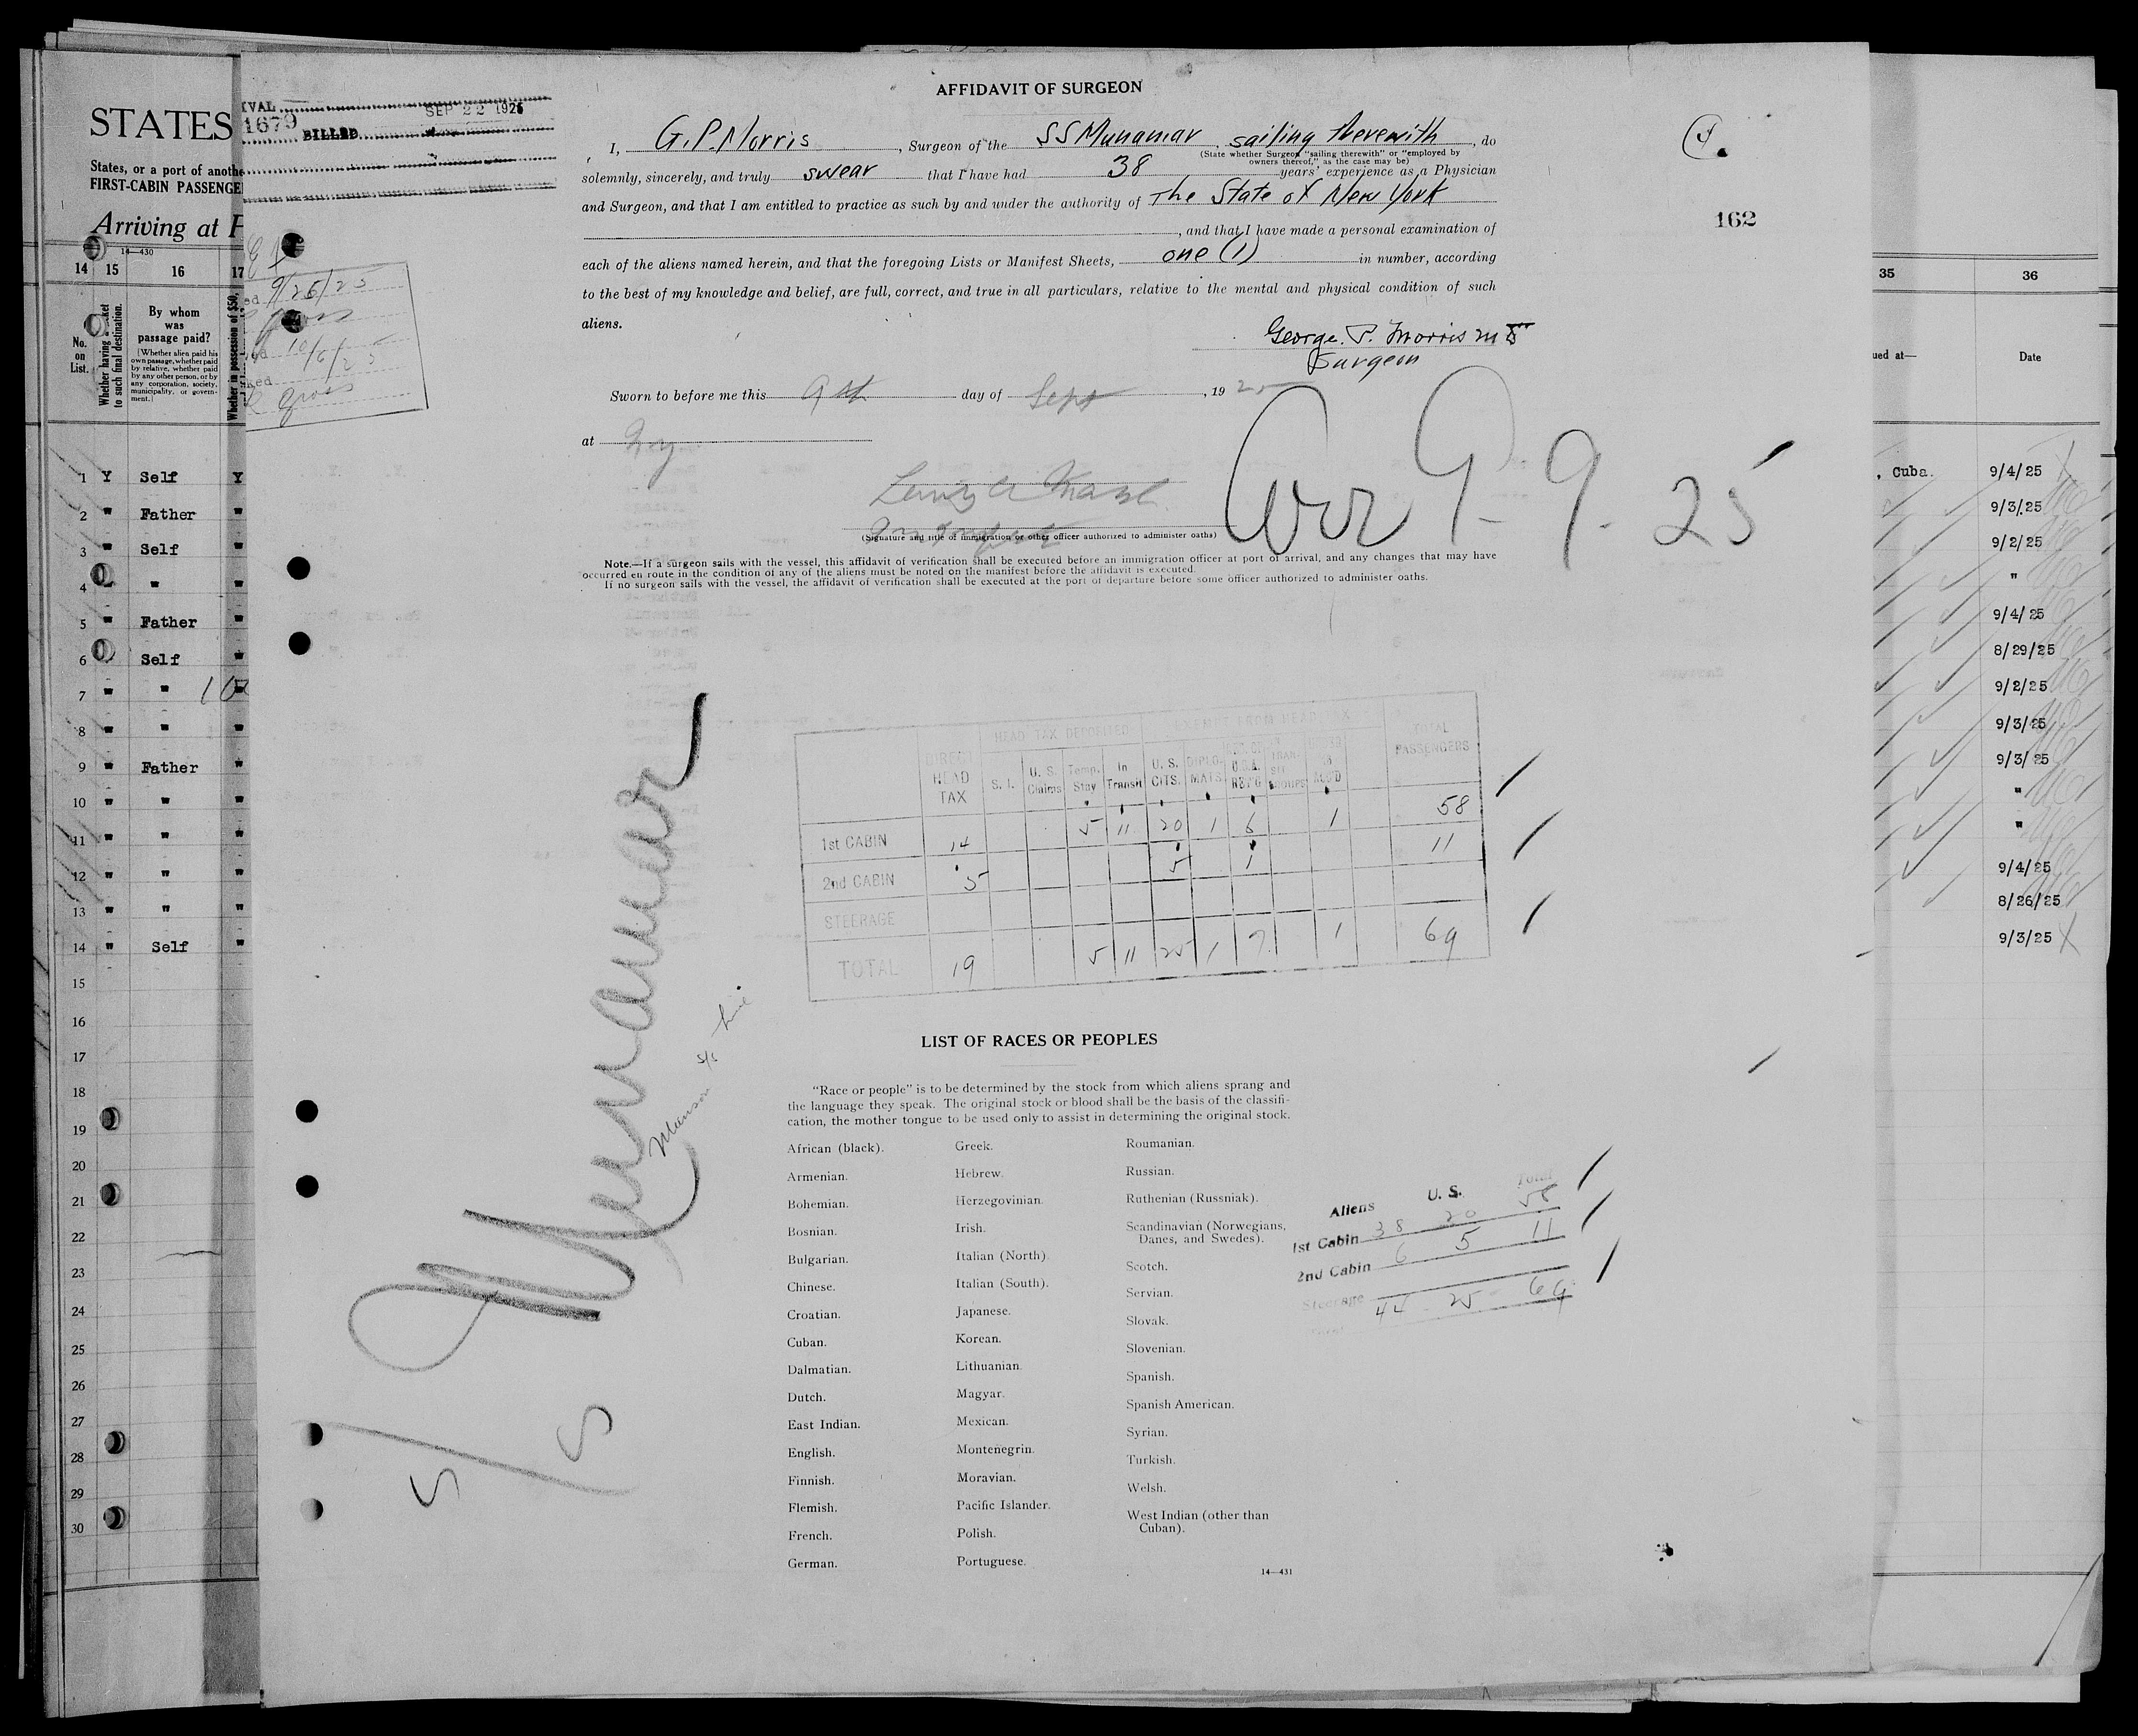 STATES
States, or a port of anothe
FIRST-CABIN PASSENGE
Arriving at P
14—430
14 15 16 17
No. on List.
Whether having a ticket to such final destination.
By whom was passage paid?
(Whether alien paid his own passage, whether paid by relative, whether paid by any other person, or by any corporation, society, municipality, or government.)
Whether in possession of $50,
1 Y Self Y
2 " Father "
3 " Self "
4 " " "
5 " Father "
6 " Self "
7 " " "
8 " " "
9 " Father "
10 " " "
11 " " "
12 " " "
13 " " "
14 " Self "
15
16
17
18
19
20
21
22
23
24
25
26
27
28
29
30
IVAL
1679 BILLED
SEP 22 1925
9/25/25
10/6/25
AFFIDAVIT OF SURGEON
I, G. P. Morris, Surgeon of the SS Munamar, sailing therewith, do
(State whether Surgeon "sailing therewith" or "employed by
owners thereof," as the case may be)
solemnly, sincerely, and truly swear that I have had 38 years' experience as a Physician
and Surgeon, and that I am entitled to practice as such by and under the authority of The State of New York
, and that I have made a personal examination of
each of the aliens named herein, and that the foregoing Lists or Manifest Sheets, one (1) in number, according
to the best of my knowledge and belief, are full, correct, and true in all particulars, relative to the mental and physical condition of such
aliens.
George. P. Morris MD
Surgeon
Sworn to before me this 9th day of Sept, 1925
at N.Y.
(Signature and title of immigration or other officer authorized to administer oaths)
Arr 9-9-25
Note.—If a surgeon sails with the vessel, this affidavit of verification shall be executed before an immigration officer at port of arrival, and any changes that may have
occurred en route in the condition of any of the aliens must be noted on the manifest before the affidavit is executed.
If no surgeon sails with the vessel, the affidavit of verification shall be executed at the port of departure before some officer authorized to administer oaths.
162
HEAD TAX DEPOSITED EXEMPT FROM HEAD TAX
DIRECT HEAD TAX S. I. U. S. Claims Temp. Stay In Transit U. S. CITS. DIPLO-MATS. TOTAL PASSENGERS
1st CABIN 14 5 11 20 1 6 1 58
2nd CABIN 5 5 1 11
STEERAGE
TOTAL 19 5 11 25 1 7 1 69
S/S Munamar
Munson S/S Line
LIST OF RACES OR PEOPLES
"Race or people" is to be determined by the stock from which aliens sprang and
the language they speak. The original stock or blood shall be the basis of the classifi-
cation, the mother tongue to be used only to assist in determining the original stock.
African (black).
Armenian.
Bohemian.
Bosnian.
Bulgarian.
Chinese.
Croatian.
Cuban.
Dalmatian.
Dutch.
East Indian.
English.
Finnish.
Flemish.
French.
German.
Greek.
Hebrew.
Herzegovinian.
Irish.
Italian (North)
Italian (South).
Japanese.
Korean.
Lithuanian.
Magyar.
Mexican.
Montenegrin.
Moravian.
Pacific Islander.
Polish.
Portuguese.
Roumanian.
Russian.
Ruthenian (Russniak).
Scandinavian (Norwegians,
Danes, and Swedes).
Scotch.
Servian.
Slovak.
Slovenian.
Spanish.
Spanish American.
Syrian.
Turkish.
Welsh.
West Indian (other than
Cuban).
14—431
Aliens U. S. Total
1st Cabin 38 20 58
2nd Cabin 6 5 11
Steerage
44 25 69
35 36
ued at— Date
, Cuba. 9/4/25
9/3/25
9/2/25
"
9/4/25
8/29/25
9/2/25
9/3/25
9/3/25
"
"
9/4/25
8/26/25
9/3/25